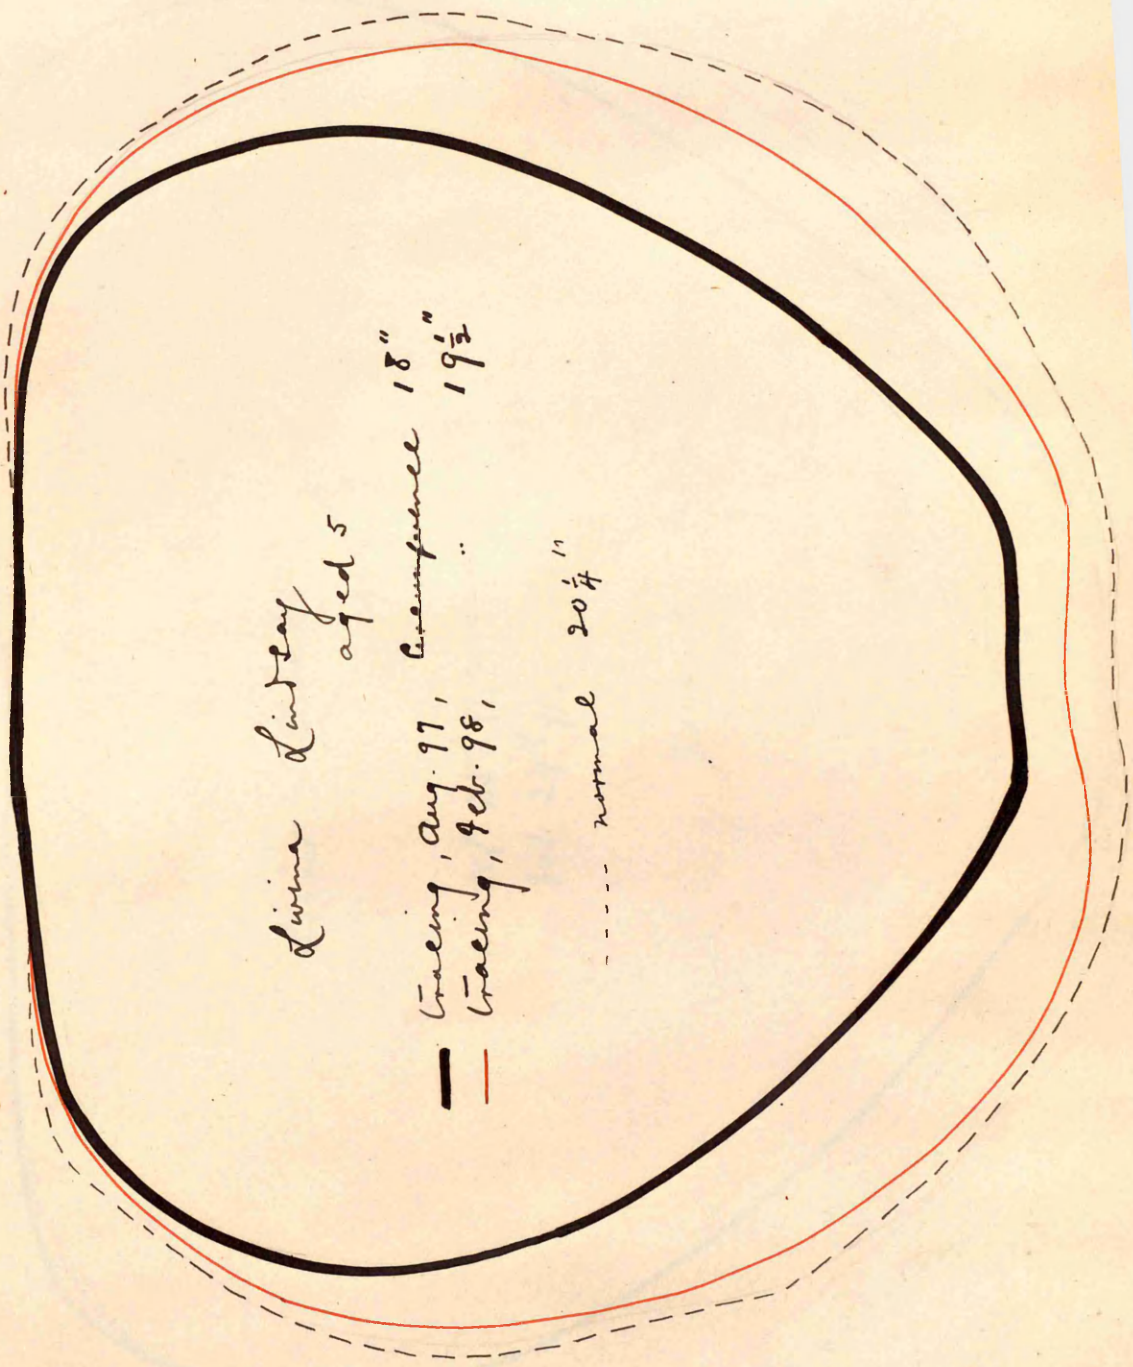 Livina Lindsay
aged 5
tracing, Aug. 97, Circumference 18"
tracing, Feb. 98, " 19½"
----- normal 20¼"